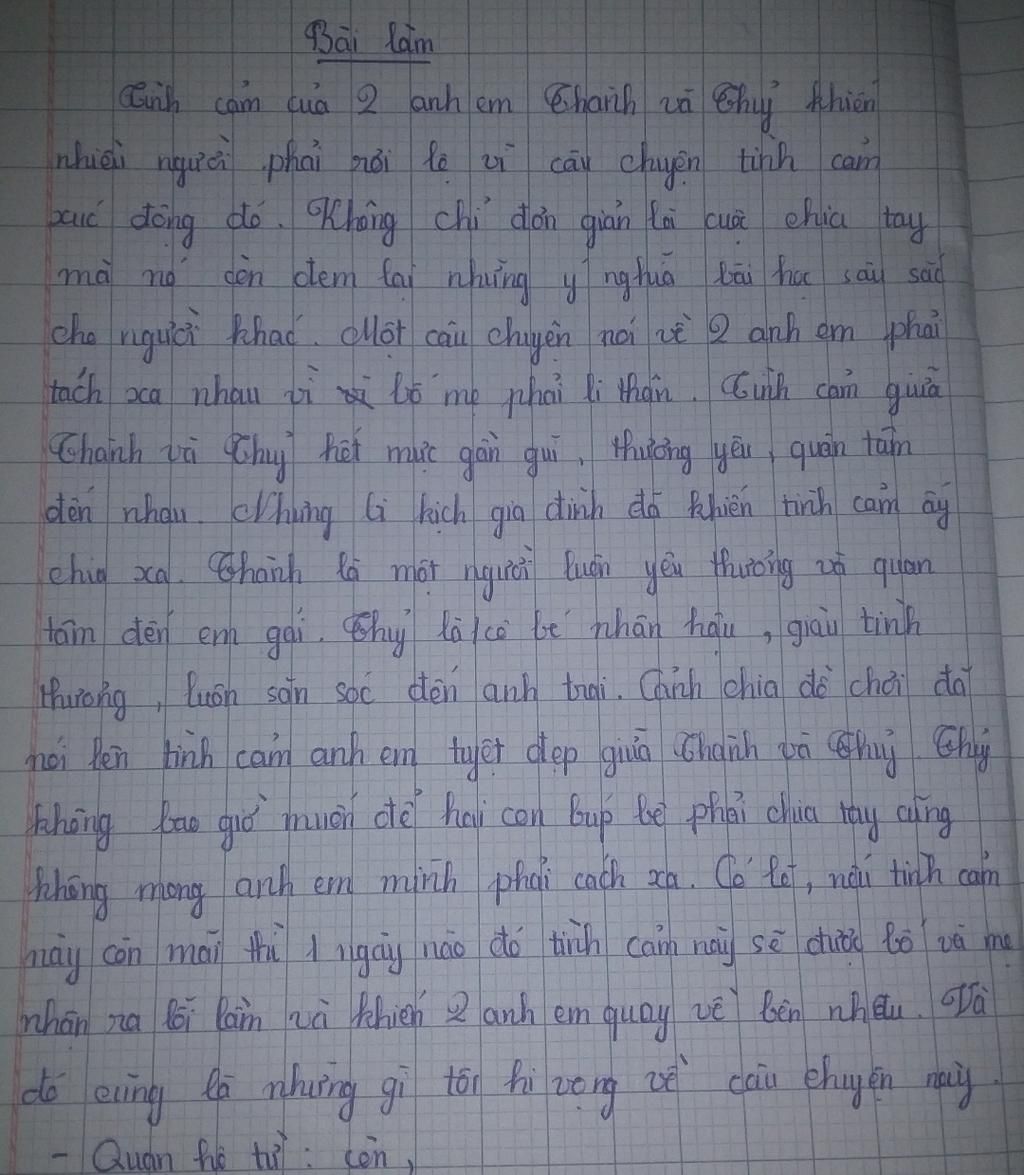 Bài làm
Tình cảm của 2 anh em Thành và Thuỷ khiến
nhiều người phải rơi lệ vì câu chuyện tình cảm
xúc động đó. Không chỉ đơn giản là cuộc chia tay
mà nó còn đem lại những ý nghĩa bài học sâu sắc
cho người khác. Một câu chuyện nói về 2 anh em phải
tách xa nhau vì bố mẹ phải li thân. Tình cảm giữa
Thành và Thuỷ hết mực gần gũi, thương yêu, quan tâm
đến nhau. Nhưng bi kịch gia đình đã khiến tình cảm ấy
chia xa. Thành là một người luôn yêu thương và quan
tâm đến em gái. Thuỷ là cô bé nhân hậu, giàu tình
thương, luôn săn sóc đến anh trai. Cảnh chia đồ chơi đã
nói lên tình cảm anh em tuyệt đẹp giữa Thành và Thuỷ. Thuỷ
không bao giờ muốn để hai con búp bê phải chia tay cũng
không mong anh em mình phải cách xa. Có lẽ, nếu tình cảm
này còn mãi thì 1 ngày nào đó tình cảm này sẽ được bố và mẹ
nhận ra lỗi lầm và khiến 2 anh em quay về bên nhau. Và
đó cũng là những gì tôi hi vọng về câu chuyện này.
- Quan hệ từ: còn,